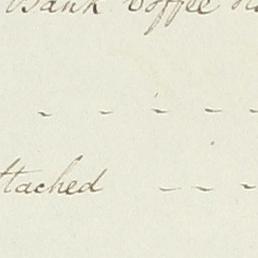 Bank Coffee
- - - - -
ttached - - -